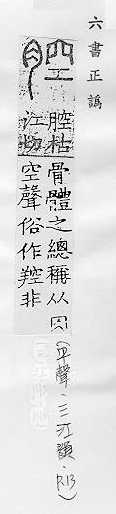 六書正譌
腔枯
江切
骨體之總稱从肉
空聲俗作羫非
(平聲·三江韻·P.13)